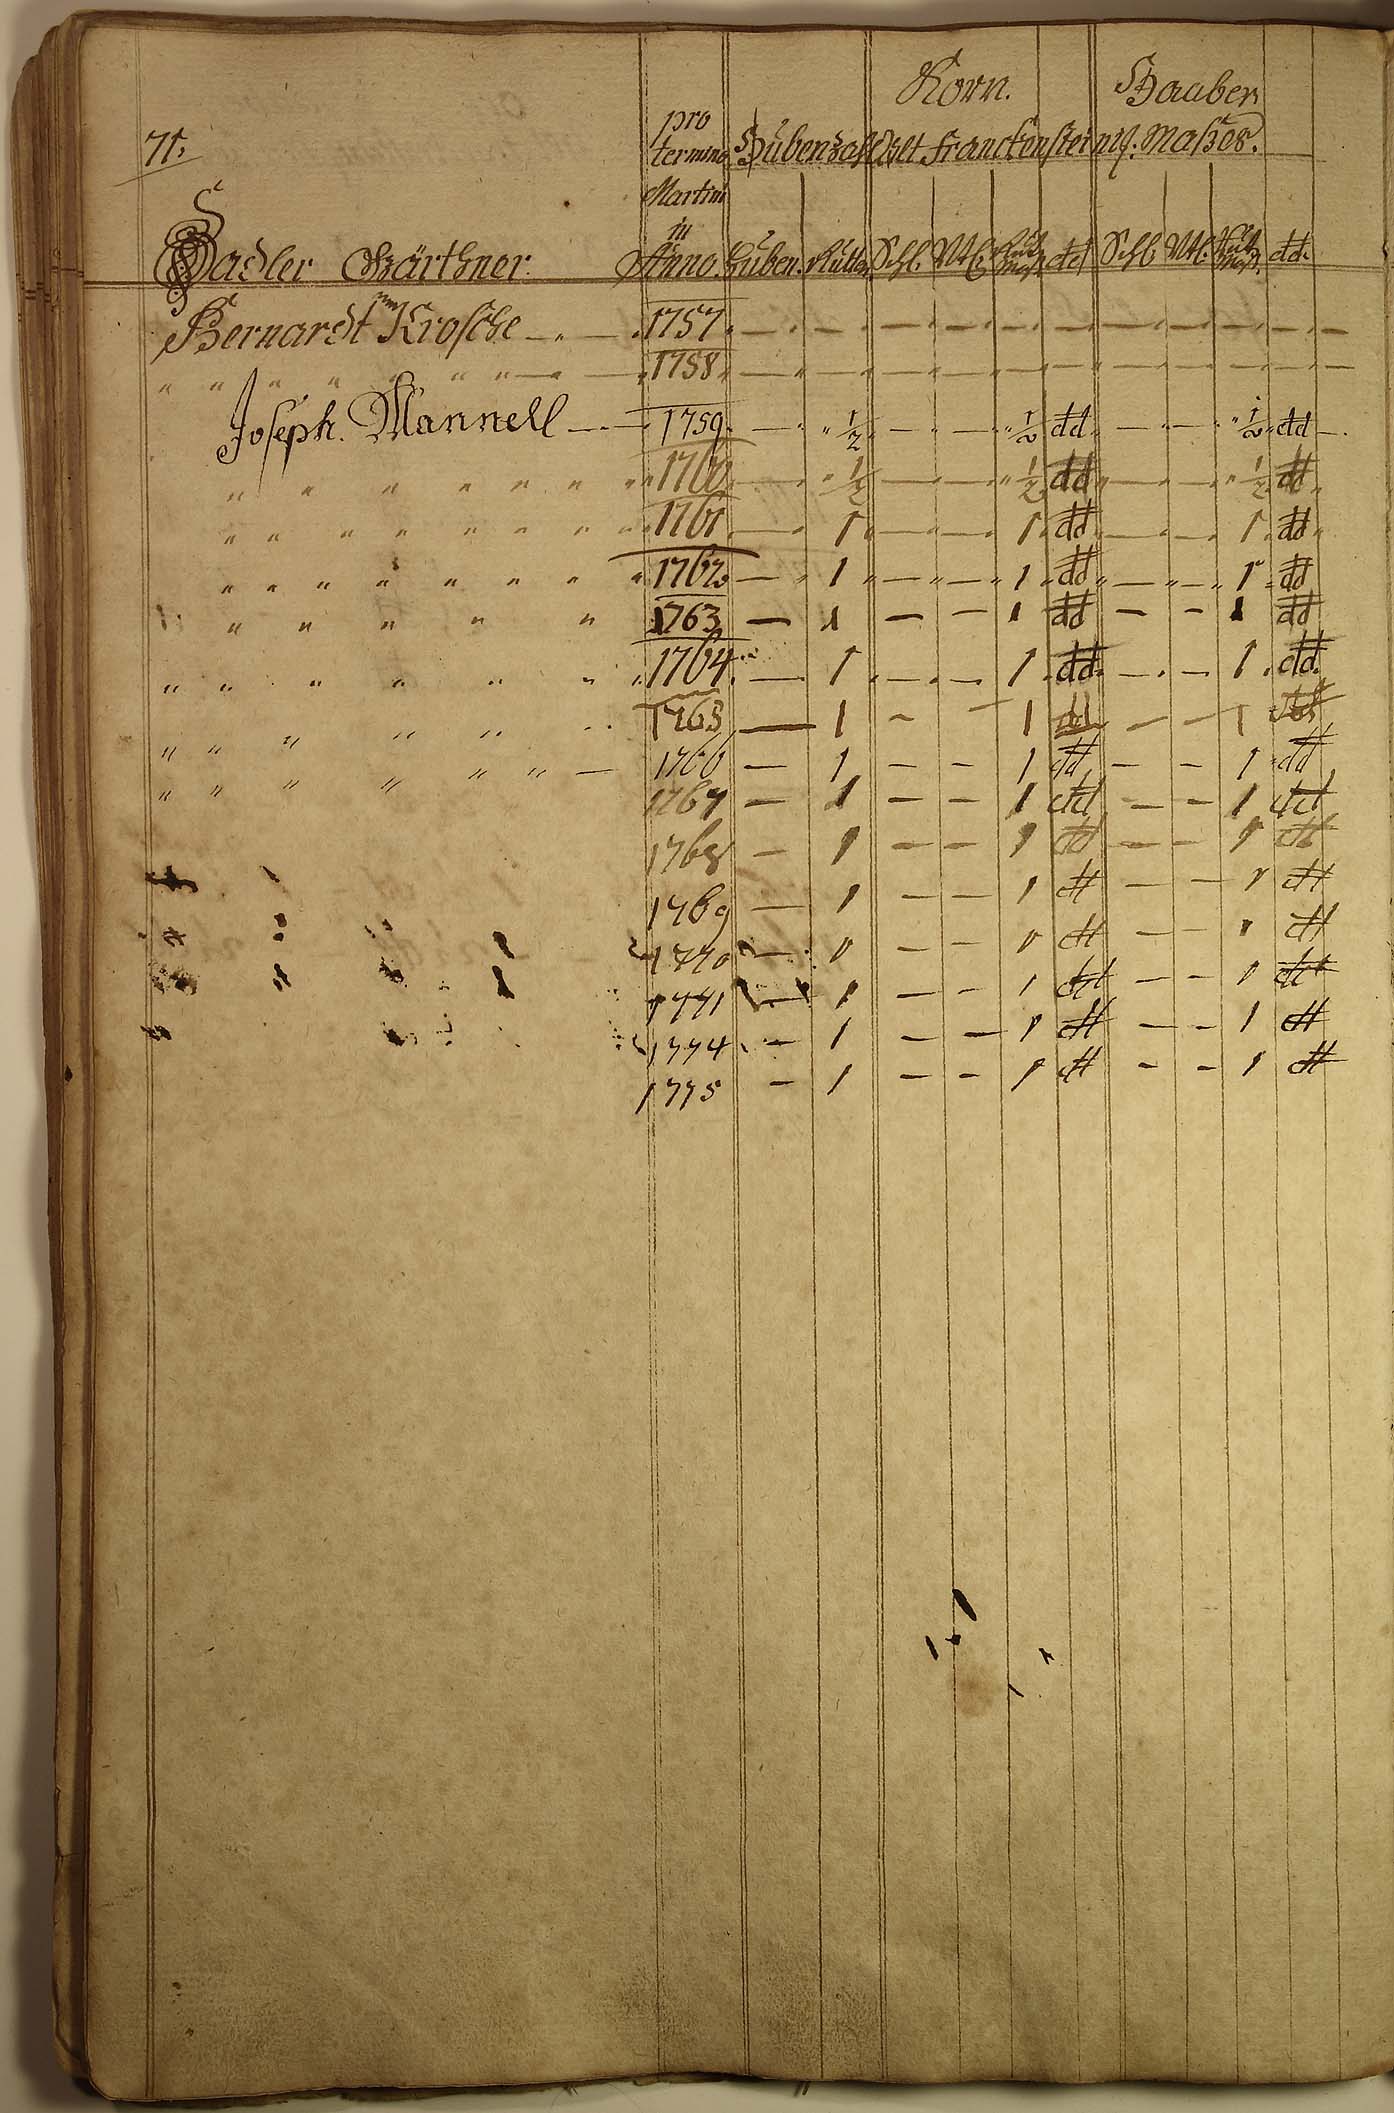 Korn. Haaber
71. pro
termino Hubenzahl Alt Franckensteinis. Maßes.
Martini
in
Sadler Gärthner. Anno. Huben. Rutten Schl. Vtl. dd Schl. Vtl. dd.
Bernardt Krosche — " — . 1757. — " — " — " — " — " — " — " —
" " " " " " " — " — 1758. — " — " — " — " — " — " — " —
Joseph. Mannell — 1759. — " ½ " — " — " ½ dd " — " — " ½ " dd —.
" " " " " " " 1760 — " ½ — " — " ½ dd " — " — " ½ dd "
" " " " " " " 1761 — " 1. — " — " 1. dd — " — " 1. dd "
" " " " " " " " 1762 — " 1 " — " — " 1 " dd " — " — " 1 " dd
" " " " " 1763 — 1 — — 1 dd — — 1 dd
" " " " " " 1764. — 1. — . — 1. dd. — . — 1. dd.
" " " " " " 1765 — 1 — — 1 dd — — 1 dd
" " " " " " — 1766 — 1 — — 1 dd — — 1 dd
1767 — 1 — — 1 dd — — 1 dd
1768 — 1 — — 1 dd — — 1 dd
1769 — 1 — — 1 dd — — 1 dd
1770 — 1 — — 1 dd — — 1 dd
1771 — 1 — — 1 dd — — 1 dd
1774 — 1 — — 1 dd — — 1 dd
1775 — 1 — — 1 dd — — 1 dd